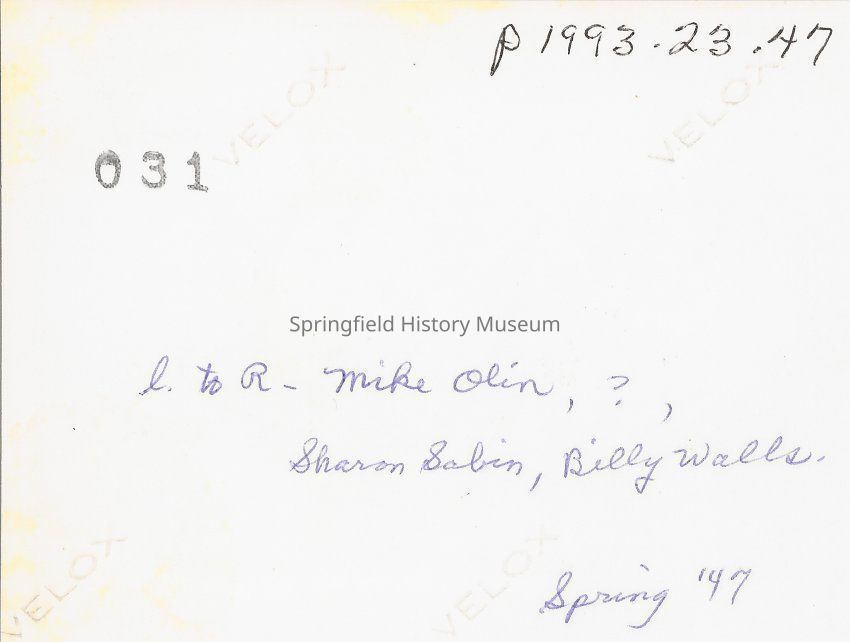 P1993.23.47
VELOX
VELOX
031
Springfield History Museum
l. to R - Mike Olin, ?,
Sharon Sabin, Billy Walls.
VELOX
VELOX
Spring '47